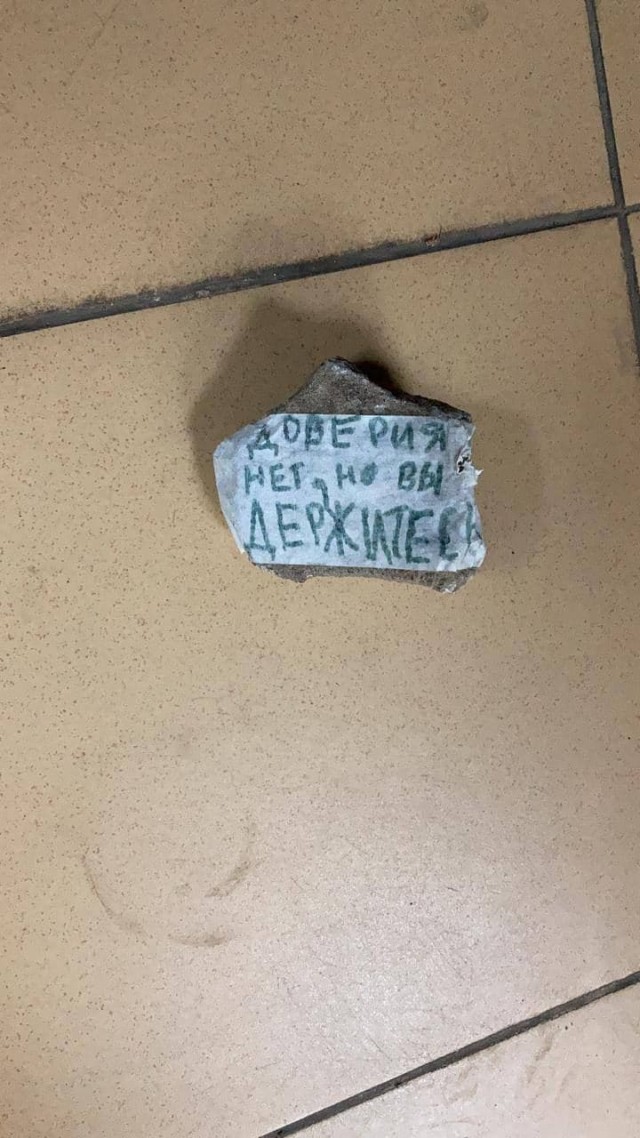 ДОВЕРИЯ
НЕТ, НО ВЫ
ДЕРЖИТЕСЬ